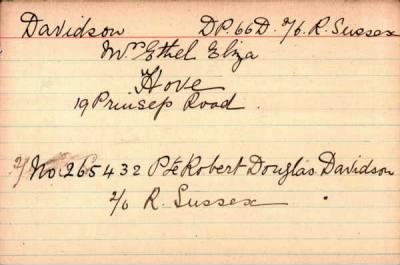 Davidson DP.66D. 2/6. R. Sussex
Mrs Ethel Eliza
Hove
19 Prinsep Road.
No 265432 Pte Robert Douglas Davidson
2/6 R. Sussex